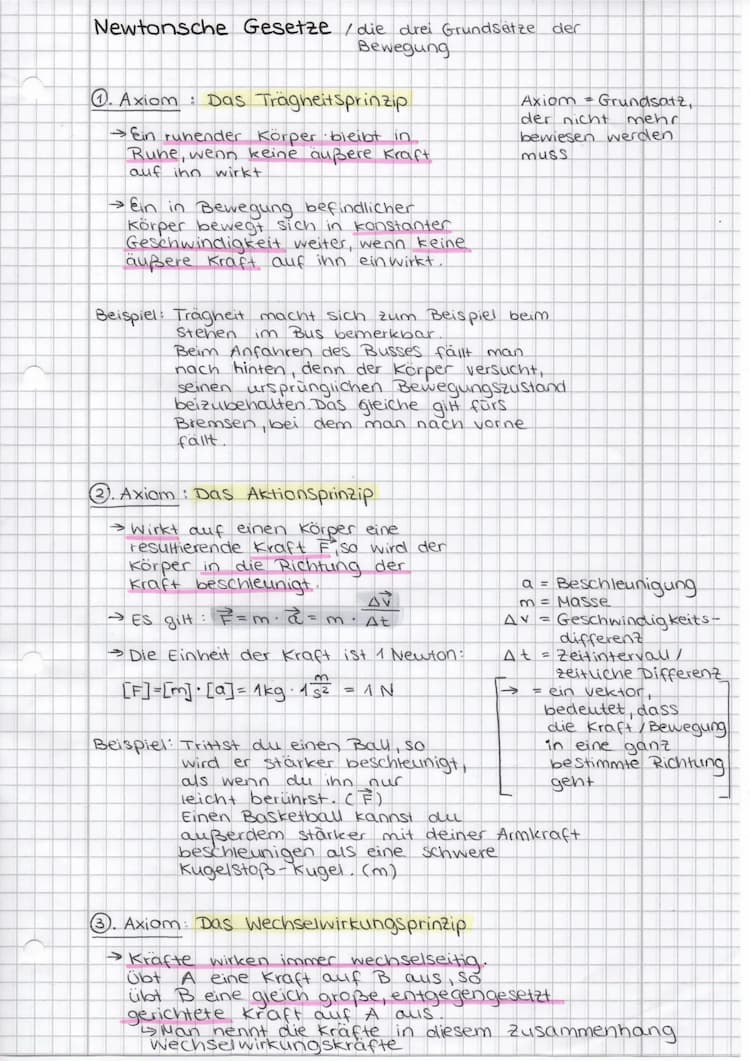 Newtonsche Gesetze / die drei Grundsätze der
Bewegung
1. Axiom : Das Trägheitsprinzip
→ Ein ruhender Körper bleibt in
Ruhe, wenn keine äußere Kraft
auf ihn wirkt
Axiom = Grundsatz,
der nicht mehr
bewiesen werden
muss
→ Ein in Bewegung befindlicher
Körper bewegt sich in konstanter
Geschwindigkeit weiter, wenn keine
äußere Kraft auf ihn einwirkt.
Beispiel: Trägheit macht sich zum Beispiel beim
Stehen im Bus bemerkbar.
Beim Anfahren des Busses fällt man
nach hinten, denn der Körper versucht,
seinen ursprünglichen Bewegungszustand
beizubehalten. Das gleiche gilt fürs
Bremsen, bei dem man nach vorne
fällt.
2. Axiom : Das Aktionsprinzip
→ Wirkt auf einen Körper eine
resultierende Kraft F⃗, so wird der
Körper in die Richtung der
Kraft beschleunigt.
→ Es gilt : F⃗ = m · a⃗ = m · Δv⃗/Δt
→ Die Einheit der Kraft ist 1 Newton:
[F]=[m]·[a]= 1kg · 1 m/s² = 1 N
a = Beschleunigung
m = Masse
Δv = Geschwindigkeits-
differenz
Δt = Zeitintervall /
zeitliche Differenz
→ = ein Vektor,
bedeutet, dass
die Kraft / Bewegung
in eine ganz
bestimmte Richtung
geht
Beispiel: Trittst du einen Ball, so
wird er stärker beschleunigt,
als wenn du ihn nur
leicht berührst. (F⃗)
Einen Basketball kannst du
außerdem stärker mit deiner Armkraft
beschleunigen als eine schwere
Kugelstoß-Kugel. (m)
3. Axiom: Das Wechselwirkungsprinzip
→ Kräfte wirken immer wechselseitig.
Übt A eine Kraft auf B aus, so
übt B eine gleich große, entgegengesetzt
gerichtete Kraft auf A aus.
↳ Man nennt die Kräfte in diesem Zusammenhang
Wechselwirkungskräfte